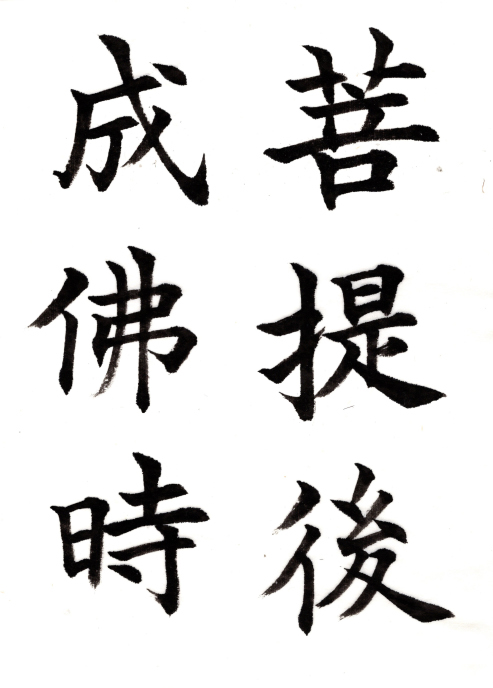 菩提後
成佛時